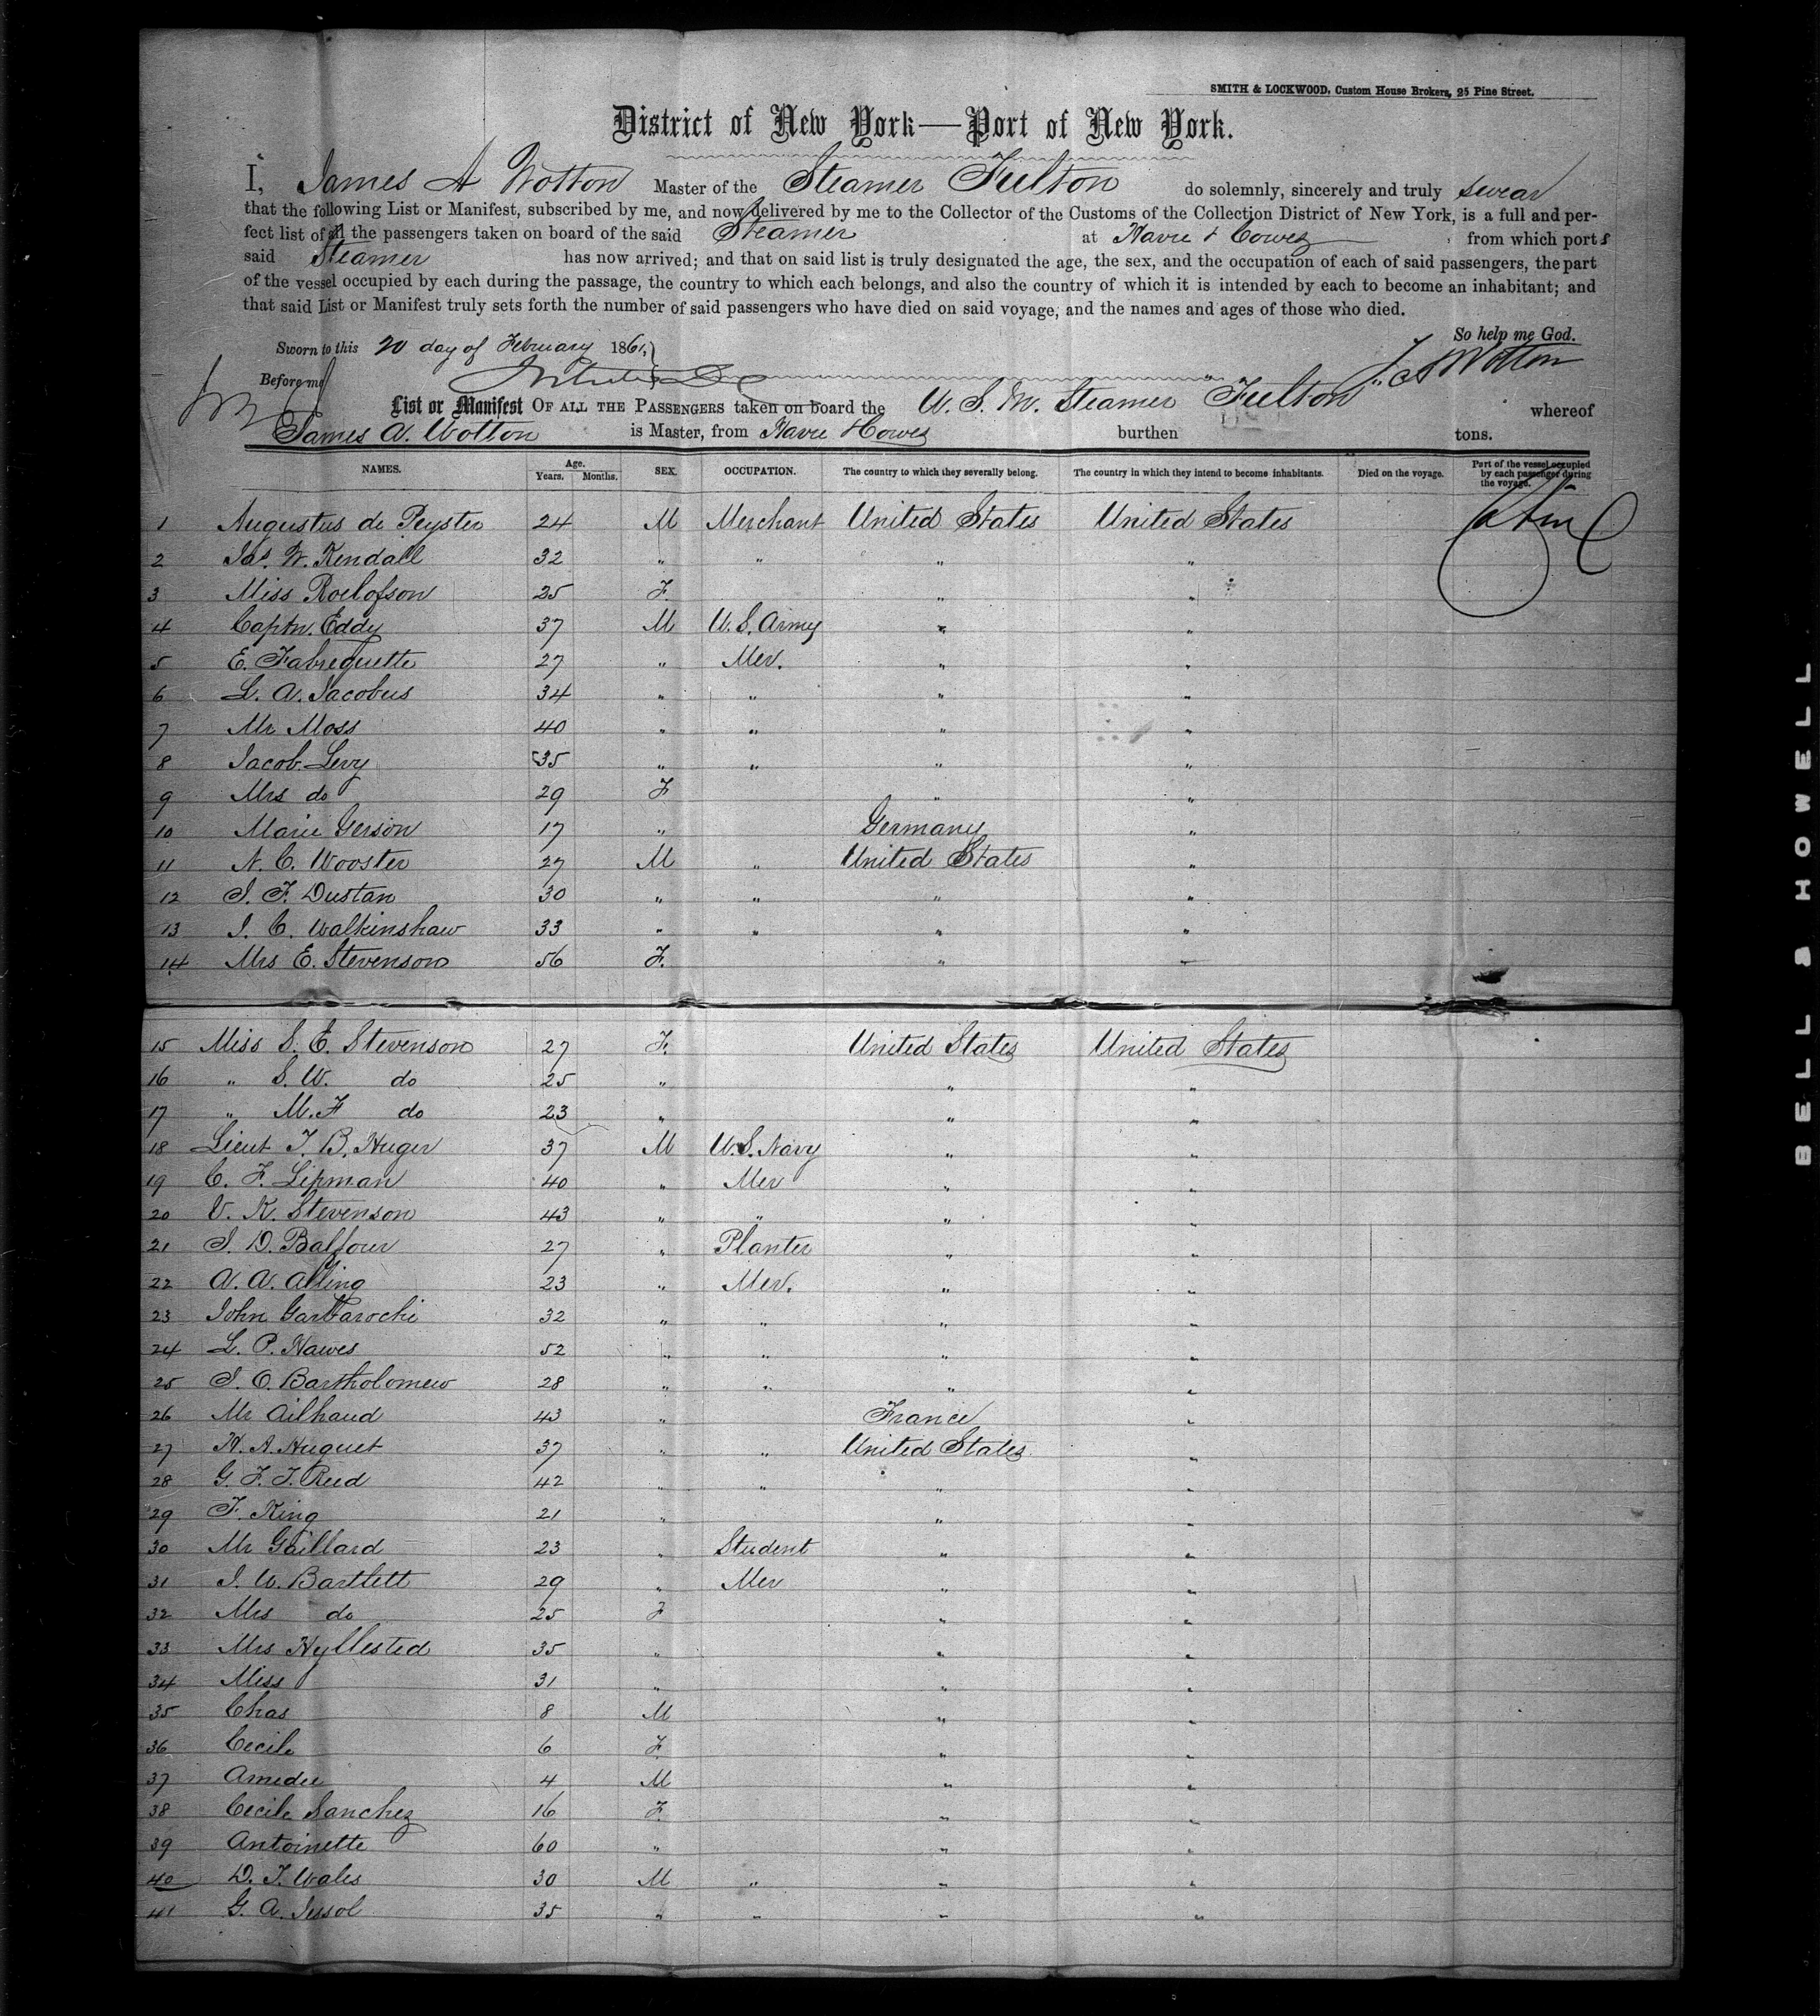 SMITH & LOCKWOOD, Custom House Brokers, 25 Pine Street.
District of New York—Port of New York.
I, James A Wotton Master of the Steamer Fulton do solemnly, sincerely and truly swear
that the following List or Manifest, subscribed by me, and now delivered by me to the Collector of the Customs of the Collection District of New York, is a full and per-
fect list of all the passengers taken on board of the said Steamer at Havre & Cowes from which ports
said Steamer has now arrived; and that on said list is truly designated the age, the sex, and the occupation of each of said passengers, the part
of the vessel occupied by each during the passage, the country to which each belongs, and also the country of which it is intended by each to become an inhabitant; and
that said List or Manifest truly sets forth the number of said passengers who have died on said voyage, and the names and ages of those who died.
So help me God.
Sworn to this 20 day of February 1861, J A Wotton
Before me
List or Manifest OF ALL THE PASSENGERS taken on board the U. S. M. Steamer Fulton whereof
James A. Wotton is Master, from Havre & Cowes burthen tons.
NAMES. Age. Years. Months. SEX. OCCUPATION. The country to which they severally belong. The country in which they intend to become inhabitants. Died on the voyage. Part of the vessel occupied by each passenger during the voyage.
1 Augustus de Peyster 24 M Merchant United States United States
2 Jas. W. Kendall 32 " " " "
3 Miss Roelofson 25 F. " "
4 Captn. Eddy 37 M U.S. Army " "
5 E. Fabreguette 27 " Mer. " "
6 L. A. Jacobus 34 " " " "
7 Mr Moss 40 " " " "
8 Jacob Levy 35 " " " "
9 Mrs do 29 F " "
10 Marie Gerson 17 " Germany "
11 N. C. Wooster 27 M " United States "
12 J. F. Dustan 30 " " " "
13 J. C. Walkinshaw 33 " " " "
14 Mrs E. Stevenson 56 F. " "
15 Miss S. E. Stevenson 27 F. United States United States
16 " S. W. do 25 " " "
17 " M. F do 23 " " "
18 Lieut T. B. Huger 37 M U.S. Navy " "
19 C. F. Lipman 40 " Mer " "
20 V. K. Stevenson 43 " " " "
21 J. D. Balfour 27 " Planter " "
22 A. A. Alling 23 " Mer. " "
23 John 32 " " " "
24 L. P. Hawes 52 " " " "
25 J. O. Bartholomew 28 " " " "
26 Mr Ailhaud 43 " France "
27 H. A. Huguet 37 " " United States "
28 G. F. T. Reed 42 " " " "
29 F. King 21 " " "
30 Mr Gaillard 23 " Student " "
31 J. W. Bartlett 29 " Mer " "
32 Mrs do 25 F " "
33 Mrs Hyllested 35 " " "
34 Miss 31 " " "
35 Chas 8 M " "
36 Cecile 6 F. " "
37 Amedee 4 M " "
38 Cecile Sanchez 16 F. " "
39 Antoinette 60 " " "
40 D. T. Wales 30 M " " "
41 G. A. 35 " " " "
BELL & HOWELL